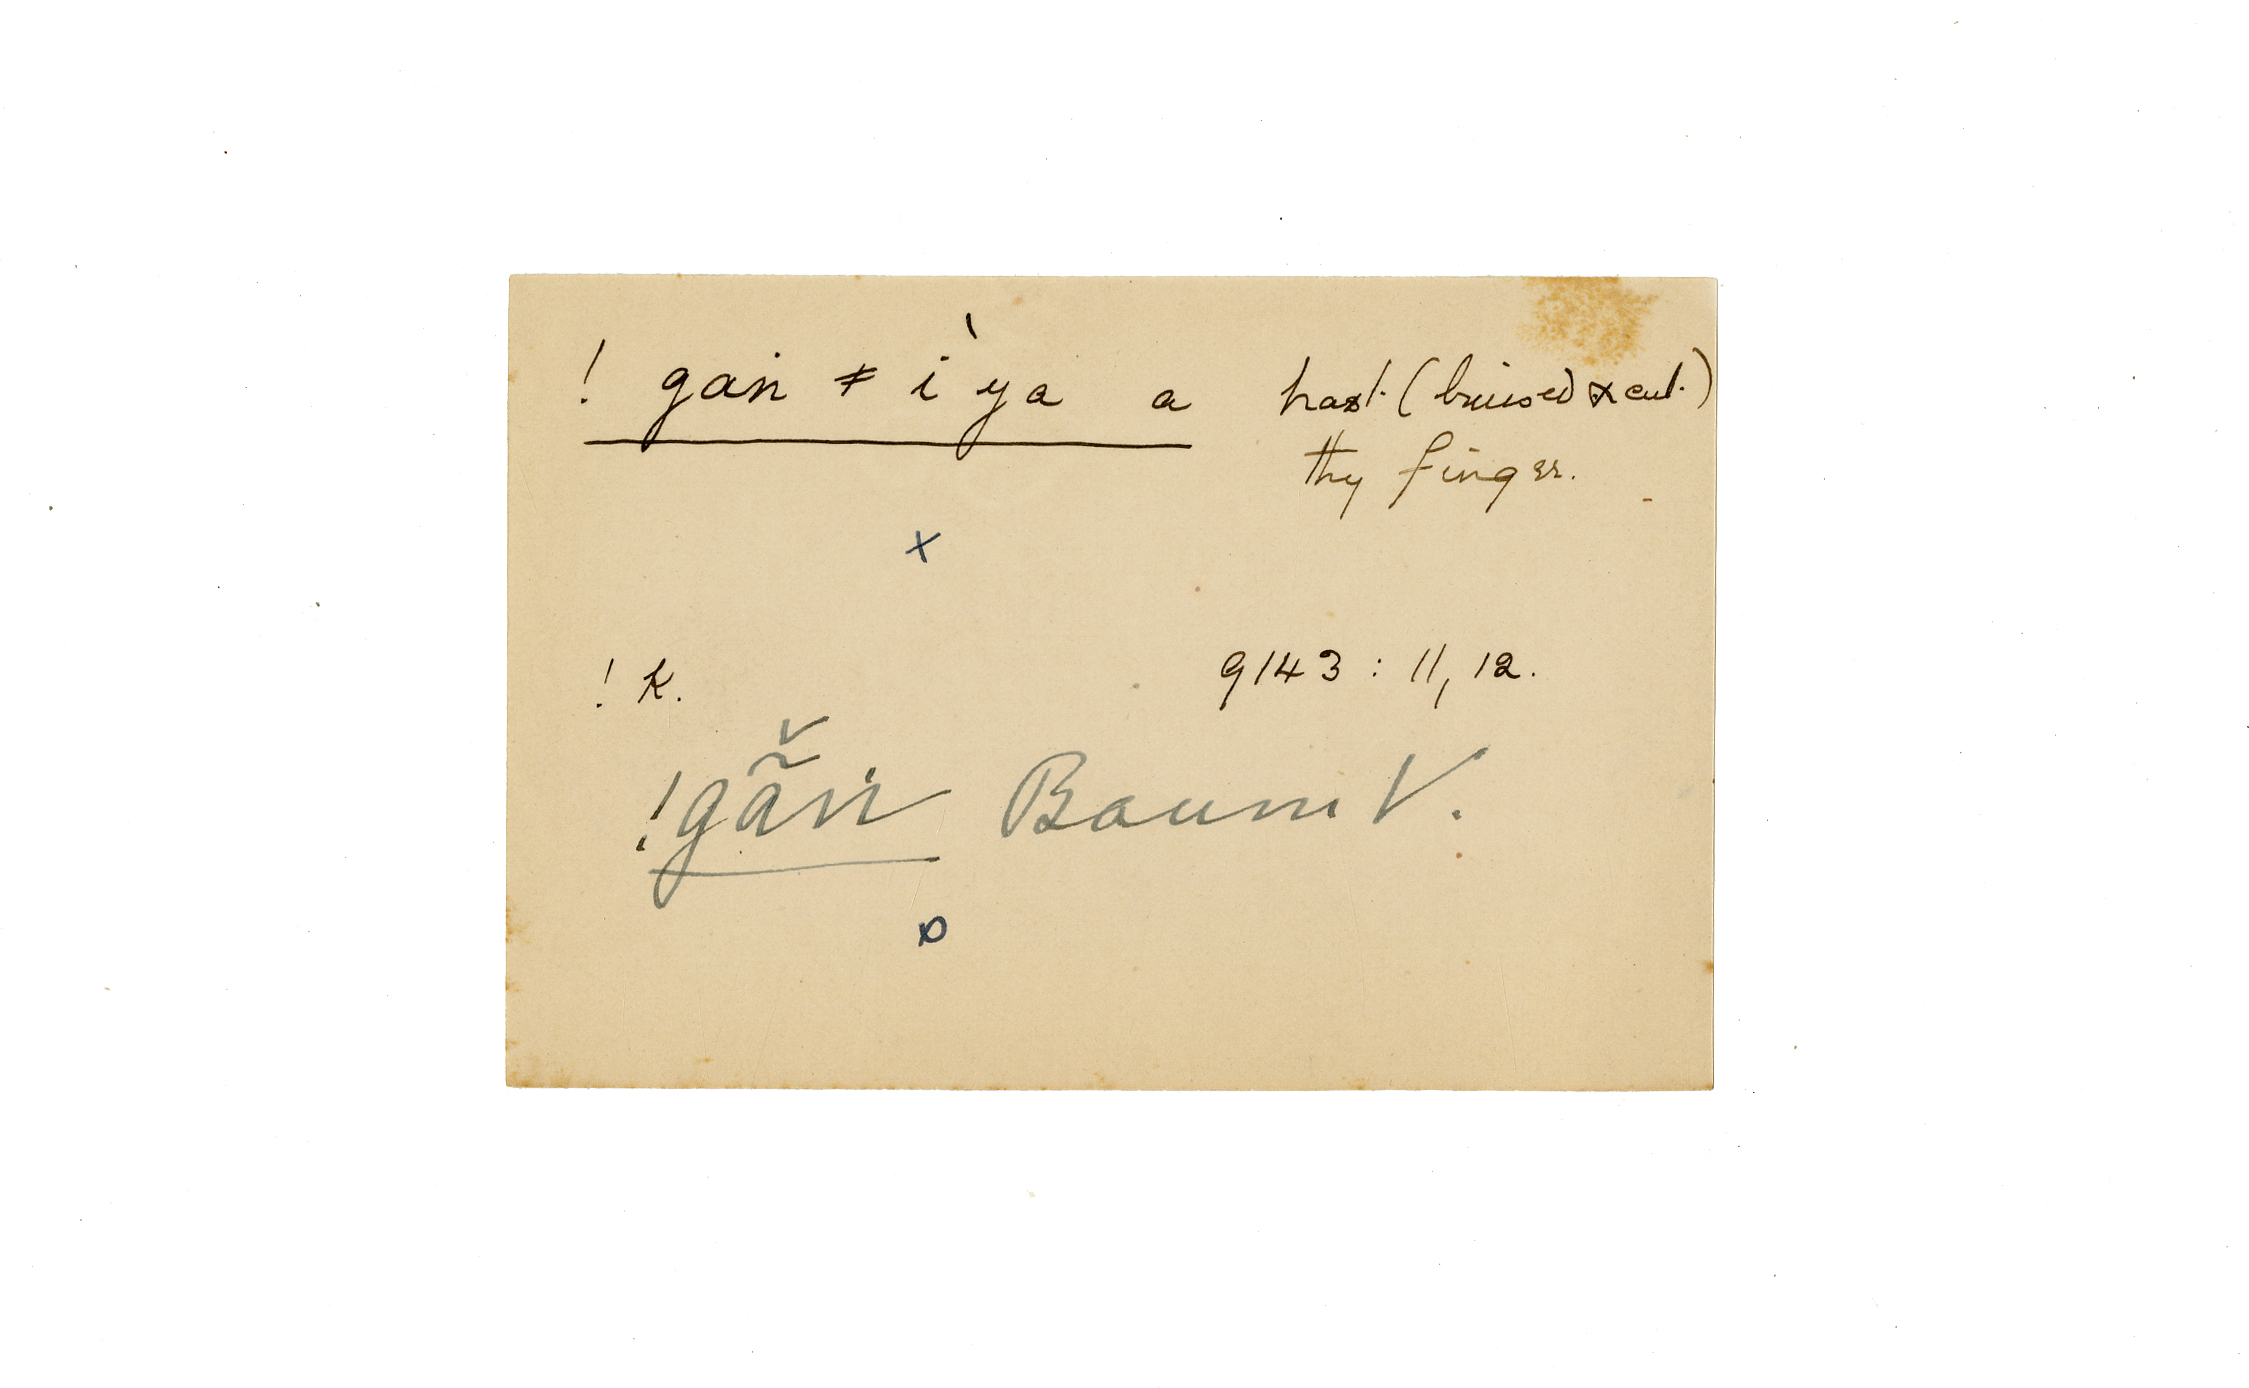 ! gaṅ ≠ i`ya a hast (bruised & cut)
thy finger.
x
! K. 9143 : 11, 12.
!gã̌ṅ Baum V.